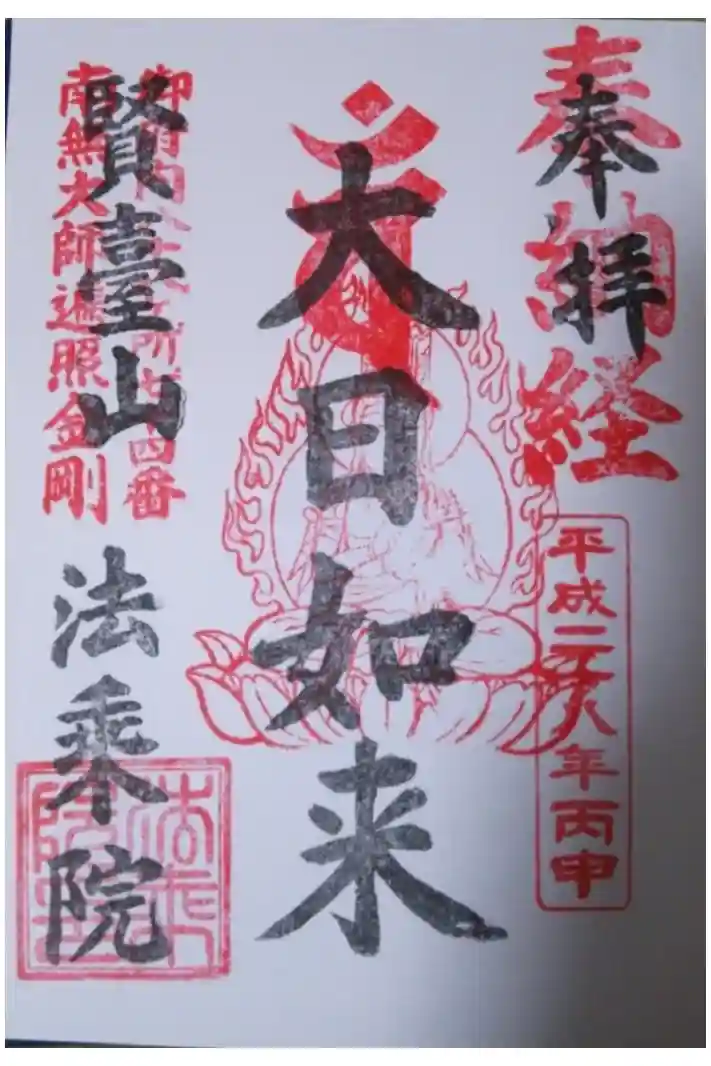 奉拝
奉納経
平成二十八年丙申
大日如来
賢臺山 法乗院
御府内八十八ヶ所七十四番
南無大師遍照金剛